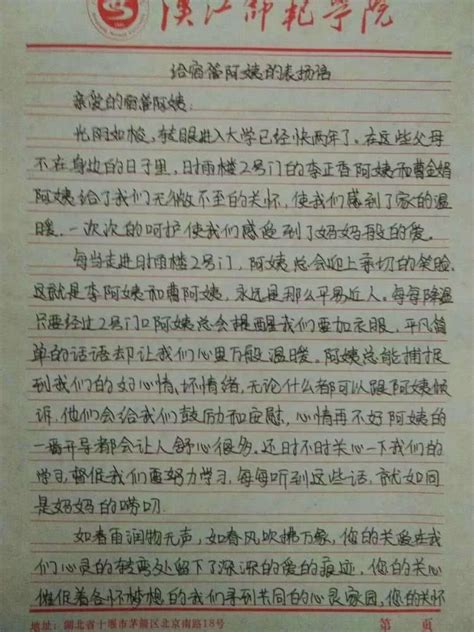 汉江师范学院
给宿管阿姨的表扬信
亲爱的宿管阿姨:
光阴如梭,转眼进入大学已经快两年了。在这些父母
不在身边的日子里,时雨楼2号门的李正香阿姨和曹金娟
阿姨给了我们无微不至的关怀,使我们感到了家的温
暖。一次次的呵护使我们感受到了妈妈般的爱。
每当走进时雨楼2号门,阿姨总会迎上亲切的笑脸。
这就是李阿姨和曹阿姨,永远是那么平易近人。每每降温
只要经过2号门口阿姨总会提醒我们要加衣服,平凡简
单的话语却让我们心里万般温暖。阿姨总能捕捉
到我们的好心情、坏情绪,无论什么都可以跟阿姨倾
诉,他们会给我们鼓励和安慰,心情再不好阿姨的
一番开导都会让人舒心很多。还时不时关心一下我们的
学习,督促我们要努力学习,每每听到这些话,就如同
是妈妈的唠叨。
如春雨润物无声,如春风吹拂万象,您的关爱在我
们心灵的转弯处留下了深深的爱的痕迹,您的关心
催促着各怀梦想的我们寻到共同的心灵家园,您的关怀
地址:湖北省十堰市茅箭区北京南路18号 第 页